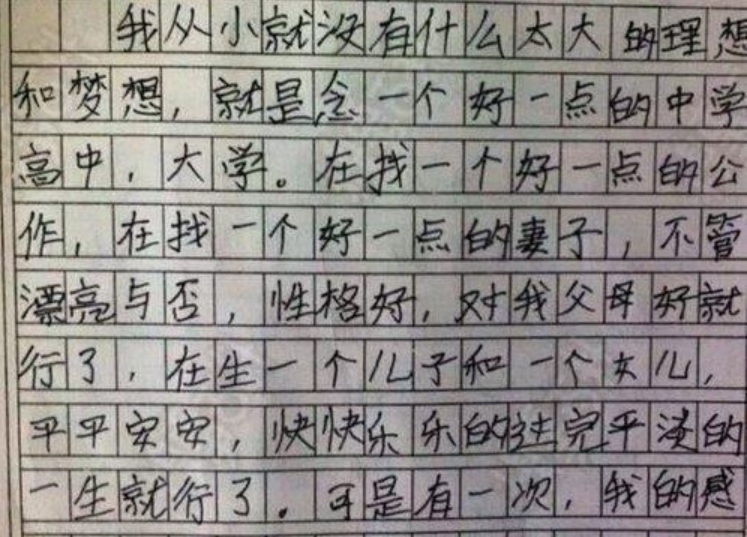 我从小就没有什么太大的理想
和梦想，就是念一个好一点的中学
高中，大学。在找一个好一点的公
作，在找一个好一点的妻子，不管
漂亮与否，性格好，对我父母好就
行了，在生一个儿子和一个女儿，
平平安安，快快乐乐的过完平淡的
一生就行了。可是有一次，我的感